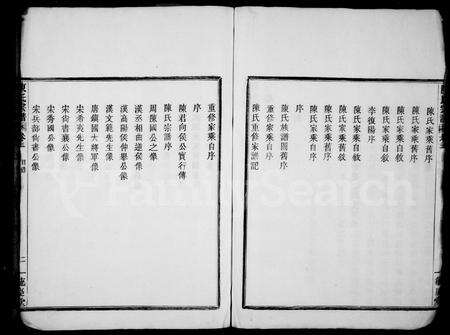 陳氏家乘舊序
陳氏家乘自敘
陳氏家乘舊序
李復陽序
陳氏家乘自敘
陳氏家乘舊序
序
陳氏族譜圖舊序
重修家乘自序
陳氏重修家譜記
重修家乘自序
序
陳君向侯公實行傳
陳氏宗譜序
周陳國公之像
漢丞相曲逆侯像
漢高陽侯仲舉公像
漢文範先生像
唐鎮國大將軍像
宋希夷先生像
宋尚書襄公像
宋秀國公像
宋兵部尚書公像
二
FamilySearch